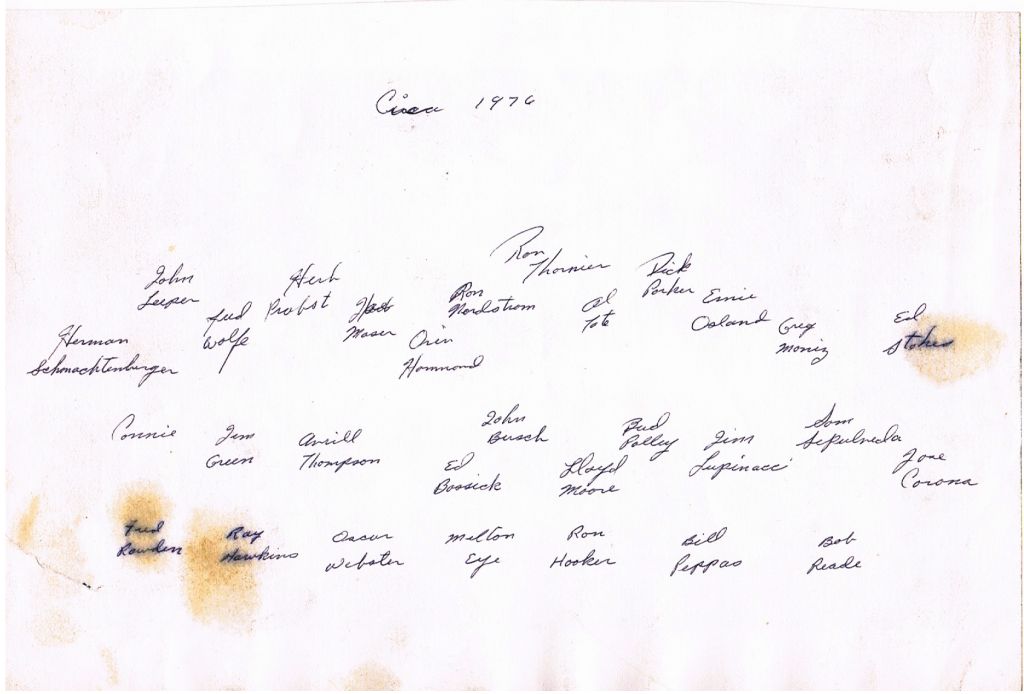 Circa 1976
Ron
Thornier
John
Leeper
Herb
Probst
Dick
Parker
Ron
Nordstrom
Al
Tate
Ernie
Osland
Fred
Wolfe
Herb
Moser
Orin
Hammond
Greg
Moniz
Ed
Stokes
Herman
Schmachtenberger
Connie
Jim
Green
Averill
Thompson
John
Busch
Ed
Bossick
Lloyd
Moore
Bud
Polley
Jim
Lupinacci
Sam
Sepulveda
Jose
Corona
Fred
Rowden
Ray
Hawkins
Oscar
Webster
Milton
Eye
Ron
Hooker
Bill
Peppas
Bob
Reade